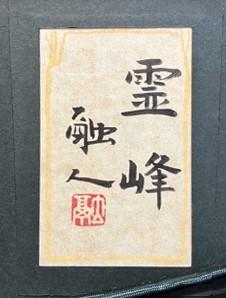 霊峰
融人